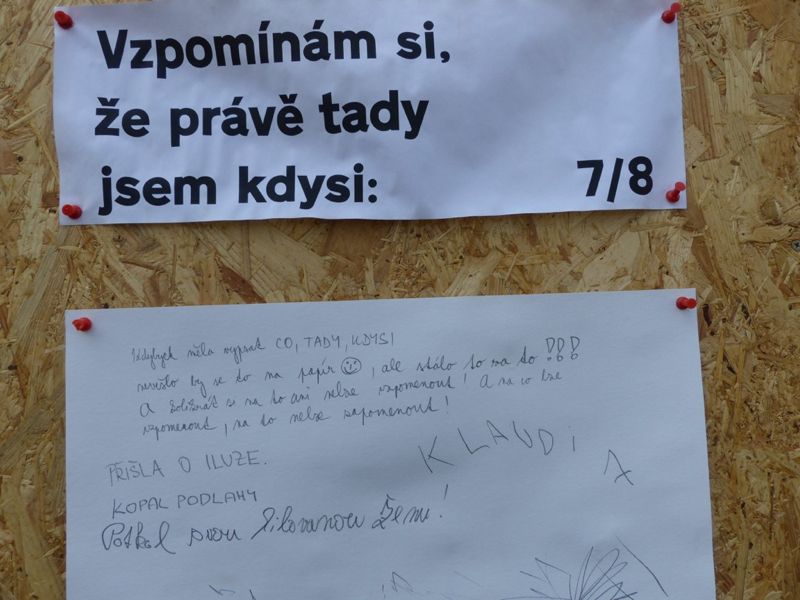 Vzpomínám si,
že právě tady
jsem kdysi: 7/8
Kdybych měla vypsat CO, TADY, KDYSI
nevešlo by se to na papír, ale stálo to za to !!!
A kolikrát si na to ani nelze vzpomenout! A na co lze
vzpomenout, na to nelze zapomenout!
PŘIŠLA O ILUZE.
KLAUDi
KOPAL PODLAHY
Potkal svou milovanou ženu!